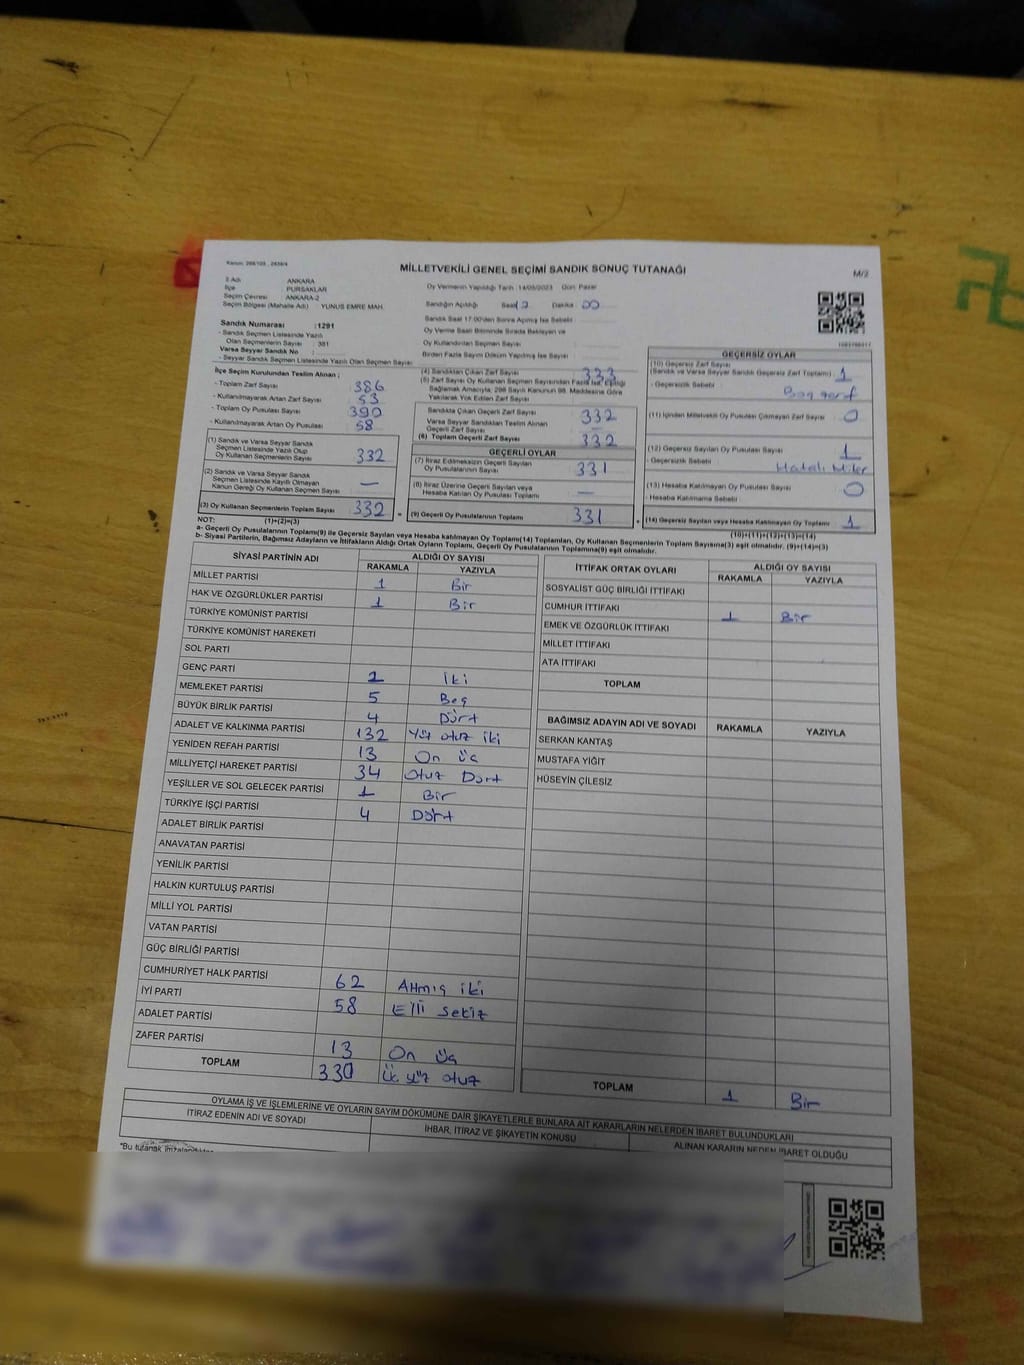 MİLLETVEKİLİ GENEL SEÇİMİ SANDIK SONUÇ TUTANAĞI
M/2
İl Adı : ANKARA
İlçe : PURSAKLAR
Seçim Çevresi : ANKARA-2
Seçim Bölgesi (Mahalle Adı) : YUNUS EMRE MAH.
Oy Vermenin Yapıldığı Tarih : 14/05/2023 Gün: Pazar
Sandık Numarası : 1291
- Sandık Seçmen Listesinde Yazılı
Olan Seçmenlerin Sayısı : 381
Varsa Seyyar Sandık No :
- Seyyar Sandık Listesinde Yazılı Olan Seçmen Sayısı:
Sandığın Açıldığı Saat Dakika 00
Sandık Saat 17:00'den Sonra Açılmış İse Sebebi :
Oy Verme Saati Bitiminde Sırada Bekleyen ve
Oy Kullandırılan Seçmen Sayısı :
Birden Fazla Sayım Döküm Yapılmış İse Sayısı :
İlçe Seçim Kurulundan Teslim Alınan ;
- Toplam Zarf Sayısı : 386
- Kullanılmayarak Artan Zarf Sayısı : 53
- Toplam Oy Pusulası Sayısı : 390
- Kullanılmayarak Artan Oy Pusulası : 58
(1) Sandık ve Varsa Seyyar Sandık
Seçmen Listesinde Yazılı Olup
Oy Kullanan Seçmenlerin Sayısı : 332
(2) Sandık ve Varsa Seyyar Sandık
Seçmen Listesinde Kayıtlı Olmayan
Kanun Gereği Oy Kullanan Seçmen Sayısı : —
(3) Oy Kullanan Seçmenlerin Toplam Sayısı : 332
(1)+(2)=(3)
(4) Sandıktan Çıkan Zarf Sayısı : 333
(5) Zarf Sayısı Oy Kullanan Seçmen Sayısından Fazla İse, Eşitliği
Sağlamak Amacıyla, 298 Sayılı Kanunun 98. Maddesine Göre
Yakılarak Yok Edilen Zarf Sayısı :
Sandıkta Çıkan Geçerli Zarf Sayısı : 332
Varsa Seyyar Sandıktan Teslim Alınan
Geçerli Zarf Sayısı :
(6) Toplam Geçerli Zarf Sayısı : 332
GEÇERLİ OYLAR
(7) İtiraz Edilmeksizin Geçerli Sayılan
Oy Pusulalarının Sayısı : 331
(8) İtiraz Üzerine Geçerli Sayılan veya
Hesaba Katılan Oy Pusulası Toplamı : —
(9) Geçerli Oy Pusulalarının Toplamı : 331
GEÇERSİZ OYLAR
(10) Geçersiz Zarf Sayısı
(Sandık ve Varsa Seyyar Sandık Geçersiz Zarf Toplamı) : 1
- Geçersizlik Sebebi : Boş zarf
(11) İçinden Milletvekili Oy Pusulası Çıkmayan Zarf Sayısı : 0
(12) Geçersiz Sayılan Oy Pusulası Sayısı : 1
- Geçersizlik Sebebi : Hatalı
(13) Hesaba Katılmayan Oy Pusulası Sayısı : 0
- Hesaba Katılmama Sebebi :
(14) Geçersiz Sayılan veya Hesaba Katılmayan Oy Toplamı : 1
(10)+(11)+(12)+(13)=(14)
NOT:
a- Geçerli Oy Pusulalarının Toplamı(9) ile Geçersiz Sayılan veya Hesaba katılmayan Oy Toplamı(14) Toplamları, Oy Kullanan Seçmenlerin Toplam Sayısına(3) eşit olmalıdır. (9)+(14)=(3)
b- Siyasi Partilerin, Bağımsız Adayların ve İttifakların Aldığı Ortak Oyların Toplamı, Geçerli Oy Pusulalarının Toplamına(9) eşit olmalıdır.
SİYASİ PARTİNİN ADI ALDIĞI OY SAYISI
RAKAMLA YAZIYLA
MİLLET PARTİSİ 1 Bir
HAK VE ÖZGÜRLÜKLER PARTİSİ 1 Bir
TÜRKİYE KOMÜNİST PARTİSİ
TÜRKİYE KOMÜNİST HAREKETİ
SOL PARTİ
GENÇ PARTİ 2 İki
MEMLEKET PARTİSİ 5 Beş
BÜYÜK BİRLİK PARTİSİ 4 Dört
ADALET VE KALKINMA PARTİSİ 132 Yüz otuz iki
YENİDEN REFAH PARTİSİ 13 On üç
MİLLİYETÇİ HAREKET PARTİSİ 34 Otuz Dört
YEŞİLLER VE SOL GELECEK PARTİSİ 1 Bir
TÜRKİYE İŞÇİ PARTİSİ 4 Dört
ADALET BİRLİK PARTİSİ
ANAVATAN PARTİSİ
YENİLİK PARTİSİ
HALKIN KURTULUŞ PARTİSİ
MİLLİ YOL PARTİSİ
VATAN PARTİSİ
GÜÇ BİRLİĞİ PARTİSİ
CUMHURİYET HALK PARTİSİ 62 Atmış iki
İYİ PARTİ 58 Elli Sekiz
ADALET PARTİSİ
ZAFER PARTİSİ 13 On üç
TOPLAM 330 Üç yüz otuz
İTTİFAK ORTAK OYLARI ALDIĞI OY SAYISI
RAKAMLA YAZIYLA
SOSYALİST GÜÇ BİRLİĞİ İTTİFAKI
CUMHUR İTTİFAKI 1 Bir
EMEK VE ÖZGÜRLÜK İTTİFAKI
MİLLET İTTİFAKI
ATA İTTİFAKI
TOPLAM
BAĞIMSIZ ADAYIN ADI VE SOYADI RAKAMLA YAZIYLA
SERKAN KANTAŞ
MUSTAFA YİĞİT
HÜSEYİN ÇİLESİZ
TOPLAM 1 Bir
OYLAMA İŞ VE İŞLEMLERİNE VE OYLARIN SAYIM DÖKÜMÜNE DAİR ŞİKAYETLERLE BUNLARA AİT KARARLARIN NELERDEN İBARET BULUNDUKLARI
İTİRAZ EDENİN ADI VE SOYADI İHBAR, İTİRAZ VE ŞİKAYETİN KONUSU ALINAN KARARIN NEDEN İBARET OLDUĞU
"Bu tutanak